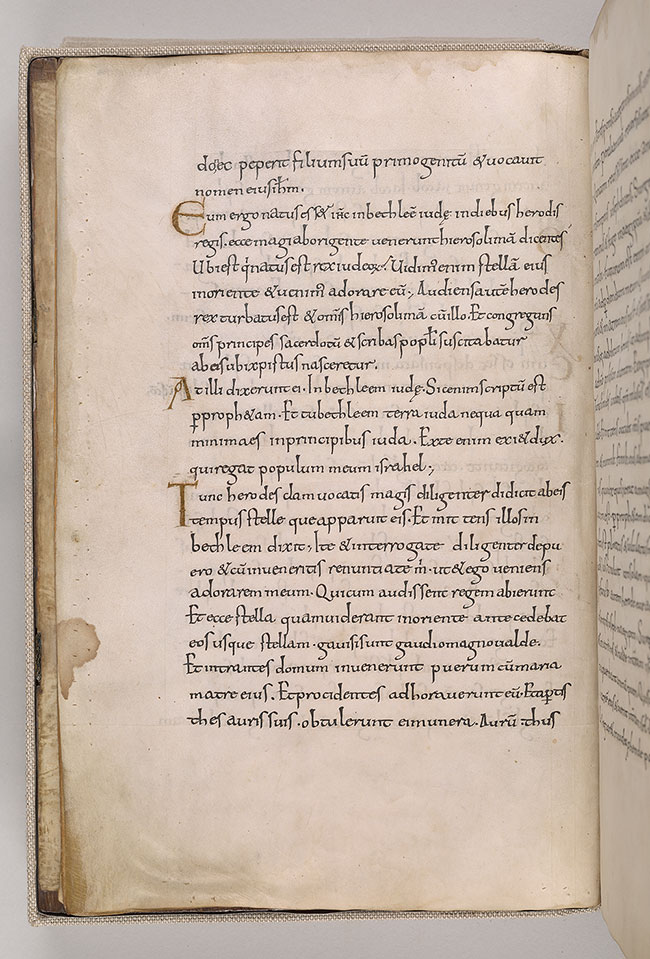 donec peperit filium suū primogenitū & uocauit
nomen eius ih̄m.
Eum ergo natus ess& ih̄c in bechleē iudę in diebus herodis
regis. ecce magi ab origente uenerunt hierosolimā dicentes
Ubi est q̇ natus est rex iudeoꝝ. Uidimꝰ enim stellā eius
in oriente & uenimꝰ adorare eū., Audiens autē herodes
rex turbatus est & om̄s hierosolimā cū illo. Et congregans
om̄s principes sacerdotū & scribas popl̄i suscitabatur
ab eis ubi xpistus nasceretur.
At illi dixerunt ei. In bechleem iudę. Sic enim scriptū est
ꝑ proph&am. Et tu bechleem terra iuda nequaquam
minima es in principibus iuda. Exte enim exi& dux.
qui regat populum meum israhel.,
Tunc herodes clam uocatis magis diligenter didicit ab eis
tempus stelle que apparuit eis. Et mittens illos in
bechleem dixit, Ite & interrogate diligenter de pu
ero & cū inueneritis renuntiate m̄. ut & ego ueniens
adorarem eum. Qui cum audissent regem abierunt
Et ecce stella quam uiderant in oriente antecedebat
eos usque stellam. gauisi sunt gaudio magno ualde.
Et intrantes domum inuenerunt puerum cū maria
matre eius. Et procidentes adhorauerunt eū. Et aꝑtis
thesauris suis. obtulerunt ei munera. Aurū thus